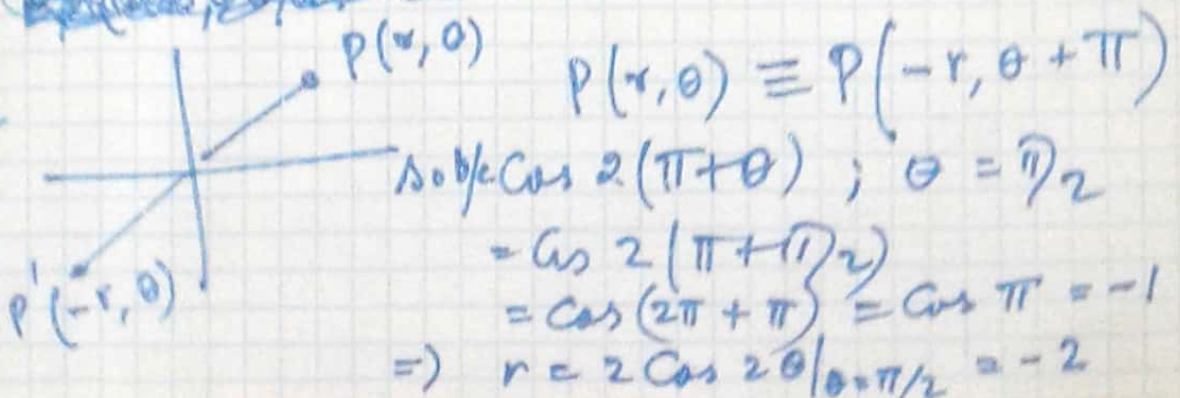 P(r, θ)
P(r, θ) ≡ P(-r, θ + π)
so b/c Cos 2(π+θ) ; θ = π/2
= Cos 2(π+π/2)
P'(-r, θ)
= Cos(2π + π) = Cos π = -1
=) r = 2 Cos 2θ|θ=π/2 = -2